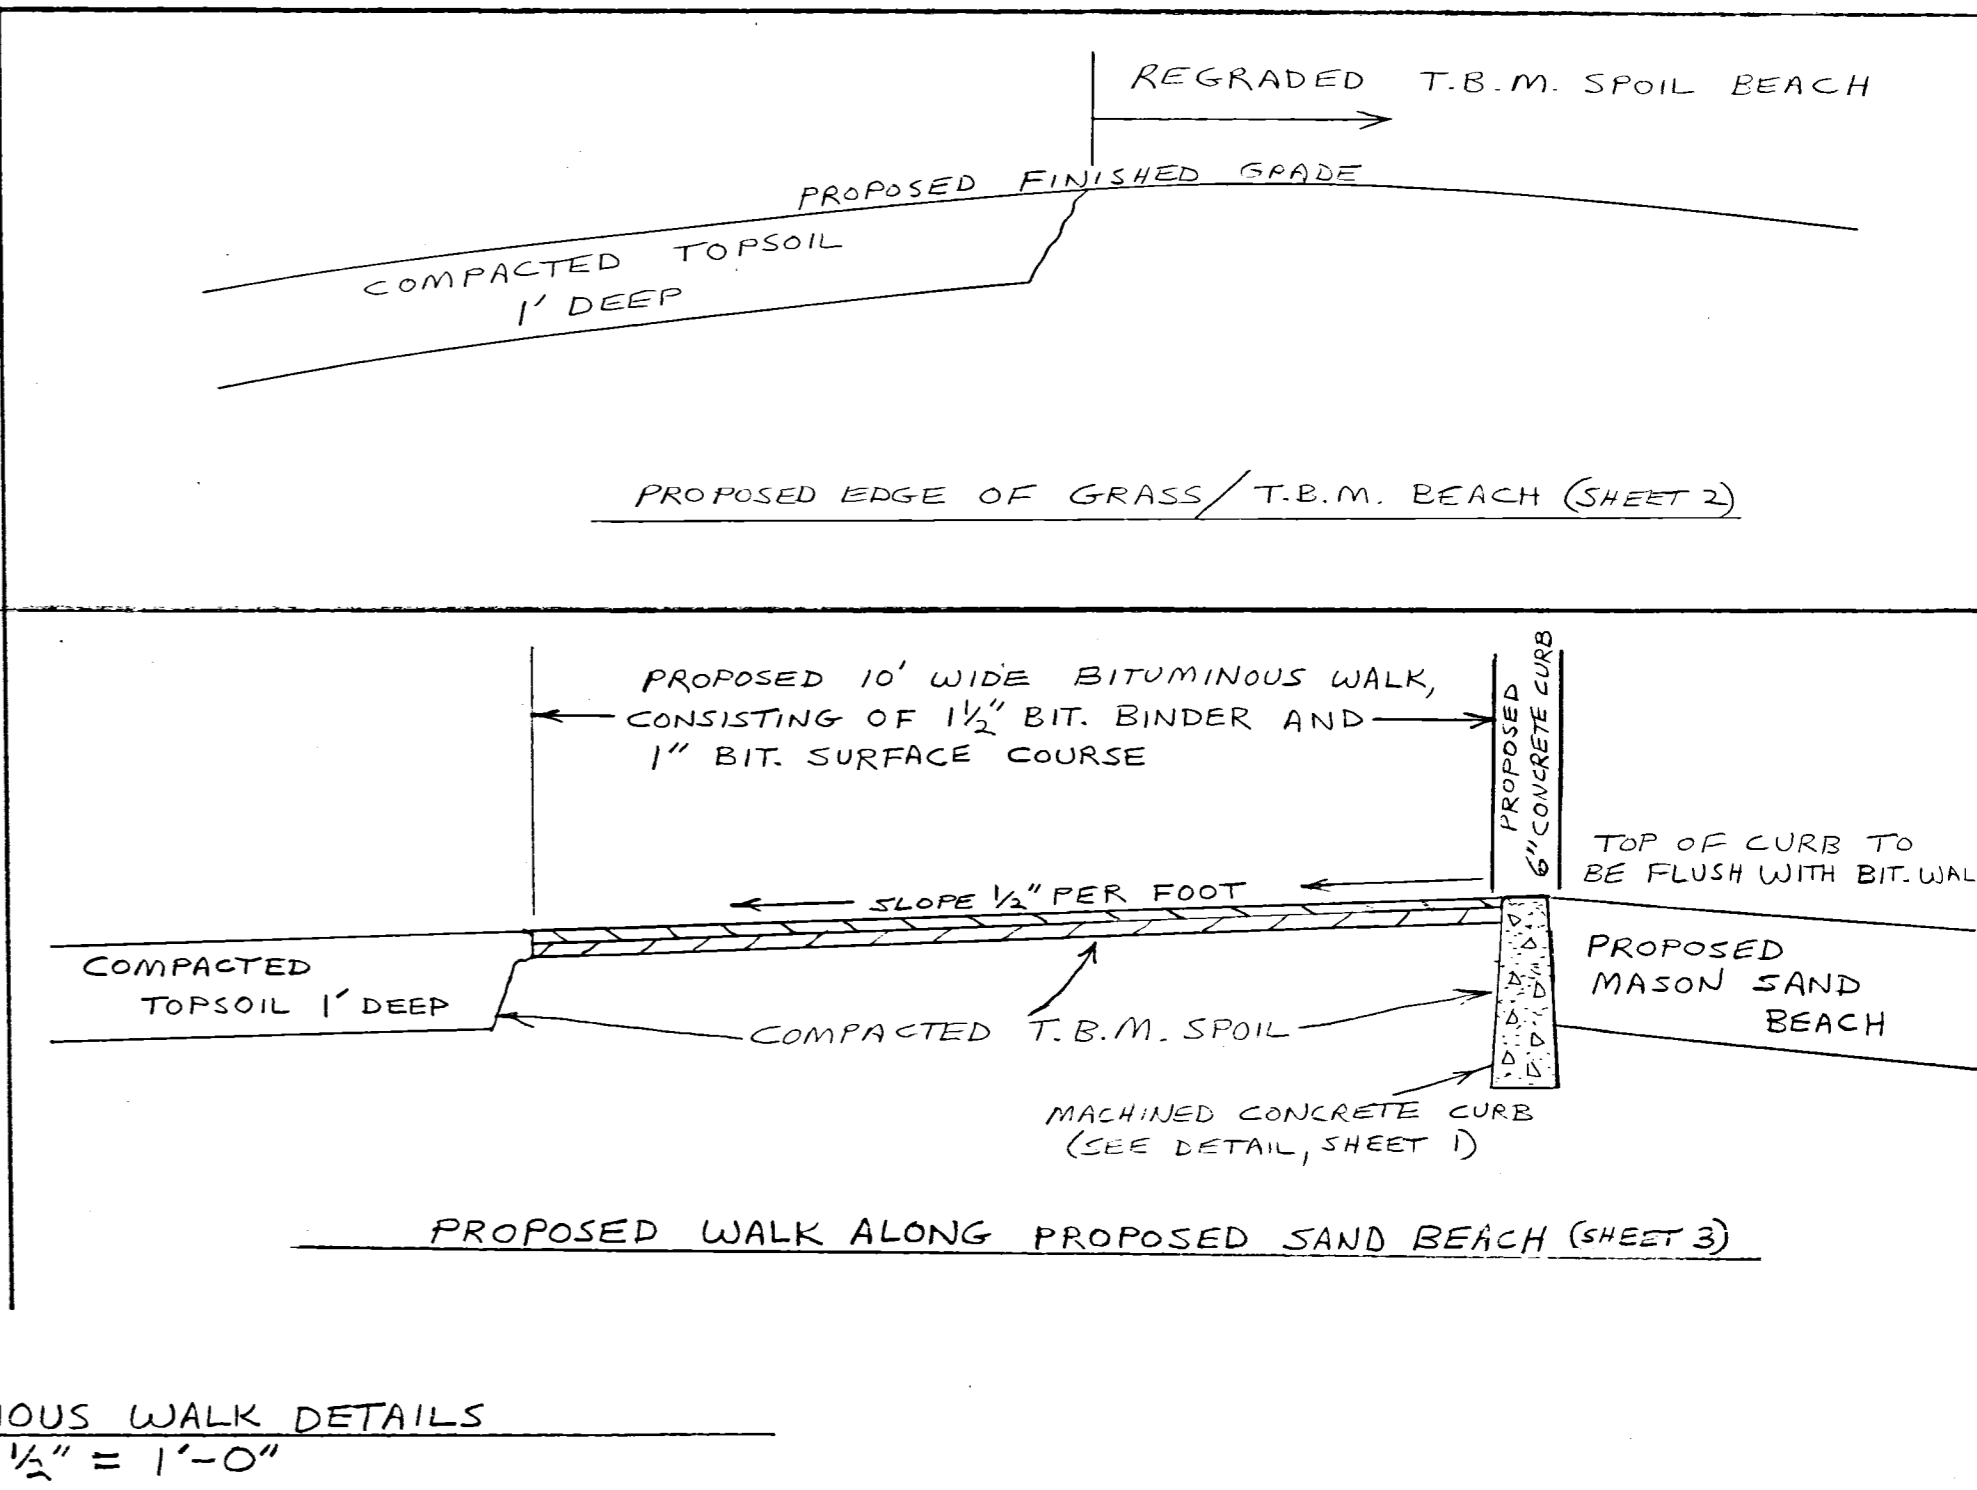 REGRADED T.B.M. SPOIL BEACH
PROPOSED FINISHED GRADE
COMPACTED TOPSOIL
1' DEEP
PROPOSED EDGE OF GRASS/T.B.M. BEACH (SHEET 2)
PROPOSED 10' WIDE BITUMINOUS WALK,
CONSISTING OF 1 1/2" BIT. BINDER AND
1" BIT. SURFACE COURSE
PROPOSED
6" CONCRETE CURB
TOP OF CURB TO
BE FLUSH WITH BIT. WAL
SLOPE 1/2" PER FOOT
COMPACTED
TOPSOIL 1' DEEP
PROPOSED
MASON SAND
BEACH
COMPACTED T.B.M. SPOIL
MACHINED CONCRETE CURB
(SEE DETAIL, SHEET 1)
PROPOSED WALK ALONG PROPOSED SAND BEACH (SHEET 3)
IOUS WALK DETAILS
1/2" = 1'-0"